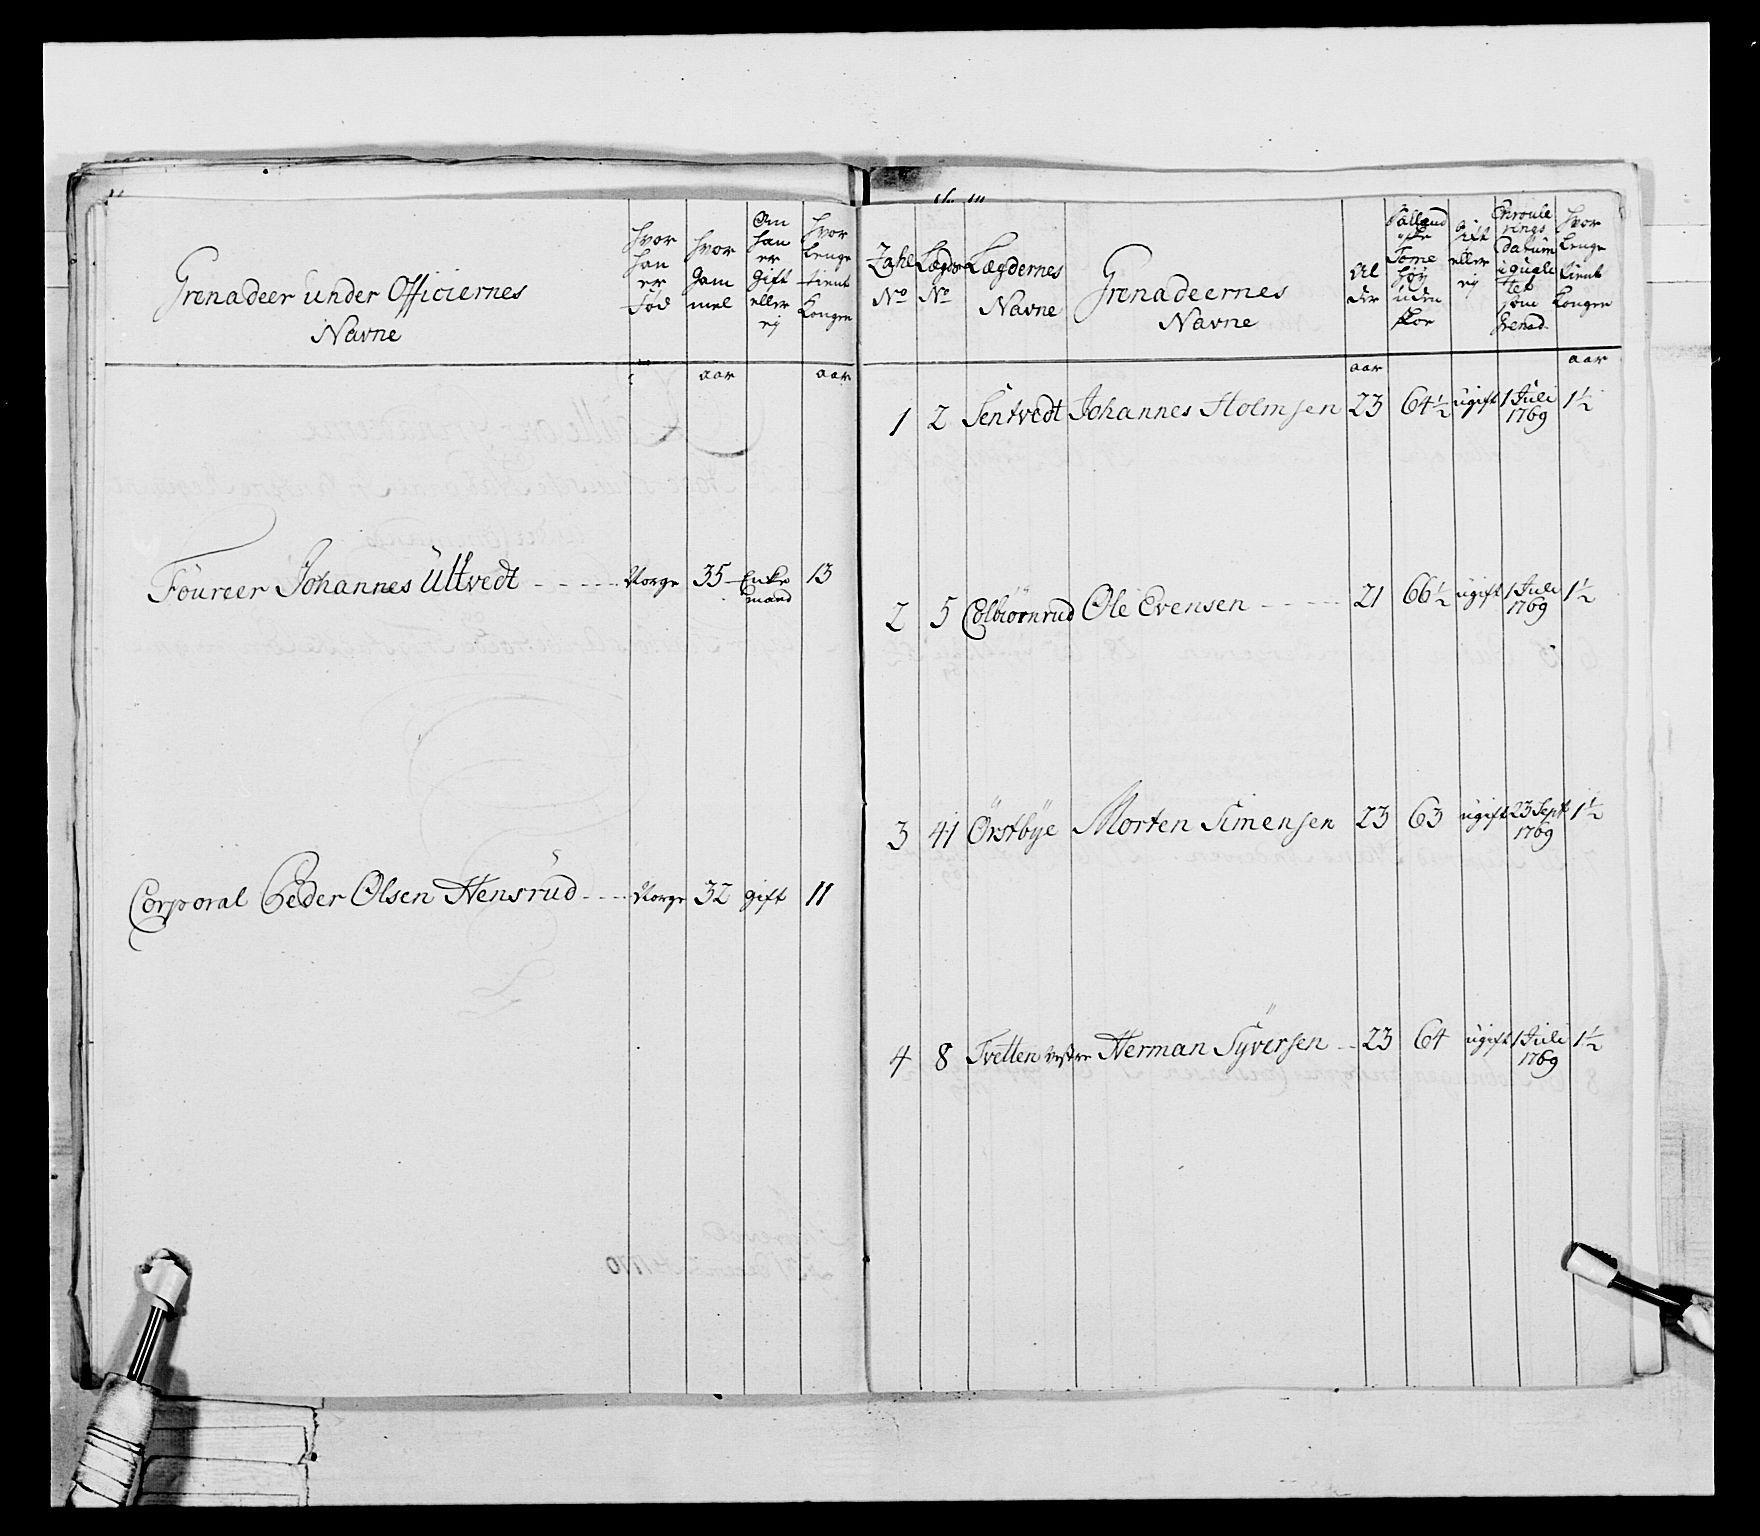 Grenadeer under Officiernes
Navne
hvor
han
er
Fød
hvor
gam
mel
Om
han
er
gift
eller
ej
hvor
lenge
tient
Kongen
aar
aar
Foureer Johannes Ultvedt - - - - - Norge 35 Enke 13
mand
Corporal Peder Olsen Hensrud - - - Norge 32 gift 11
Zahl
No
Lægde
No
Lægdernes
Navne
Grenadeernes
Navne
Al
der
Tome
høy
uden
skoe
gift
eller
ej
Enroule
rings
Datum
som
Grenad.
hvor
lenge
tient
Kongen
aar
aar
1 2 Sentvedt Johannes Holmsen 23 64½ ugift 1 Juli 1½
1769
2 5 Colbiörnrud Ole Evensen - - - - - 21 66½ ugift 1 Juli 1½
1769
3 41 Örstbye Morten Simensen 23 63 ugift 23 Sept 1½
1769
4 8 Tvetten vestre Herman Syversen - - 23 64 ugift 1 Juli 1½
1769